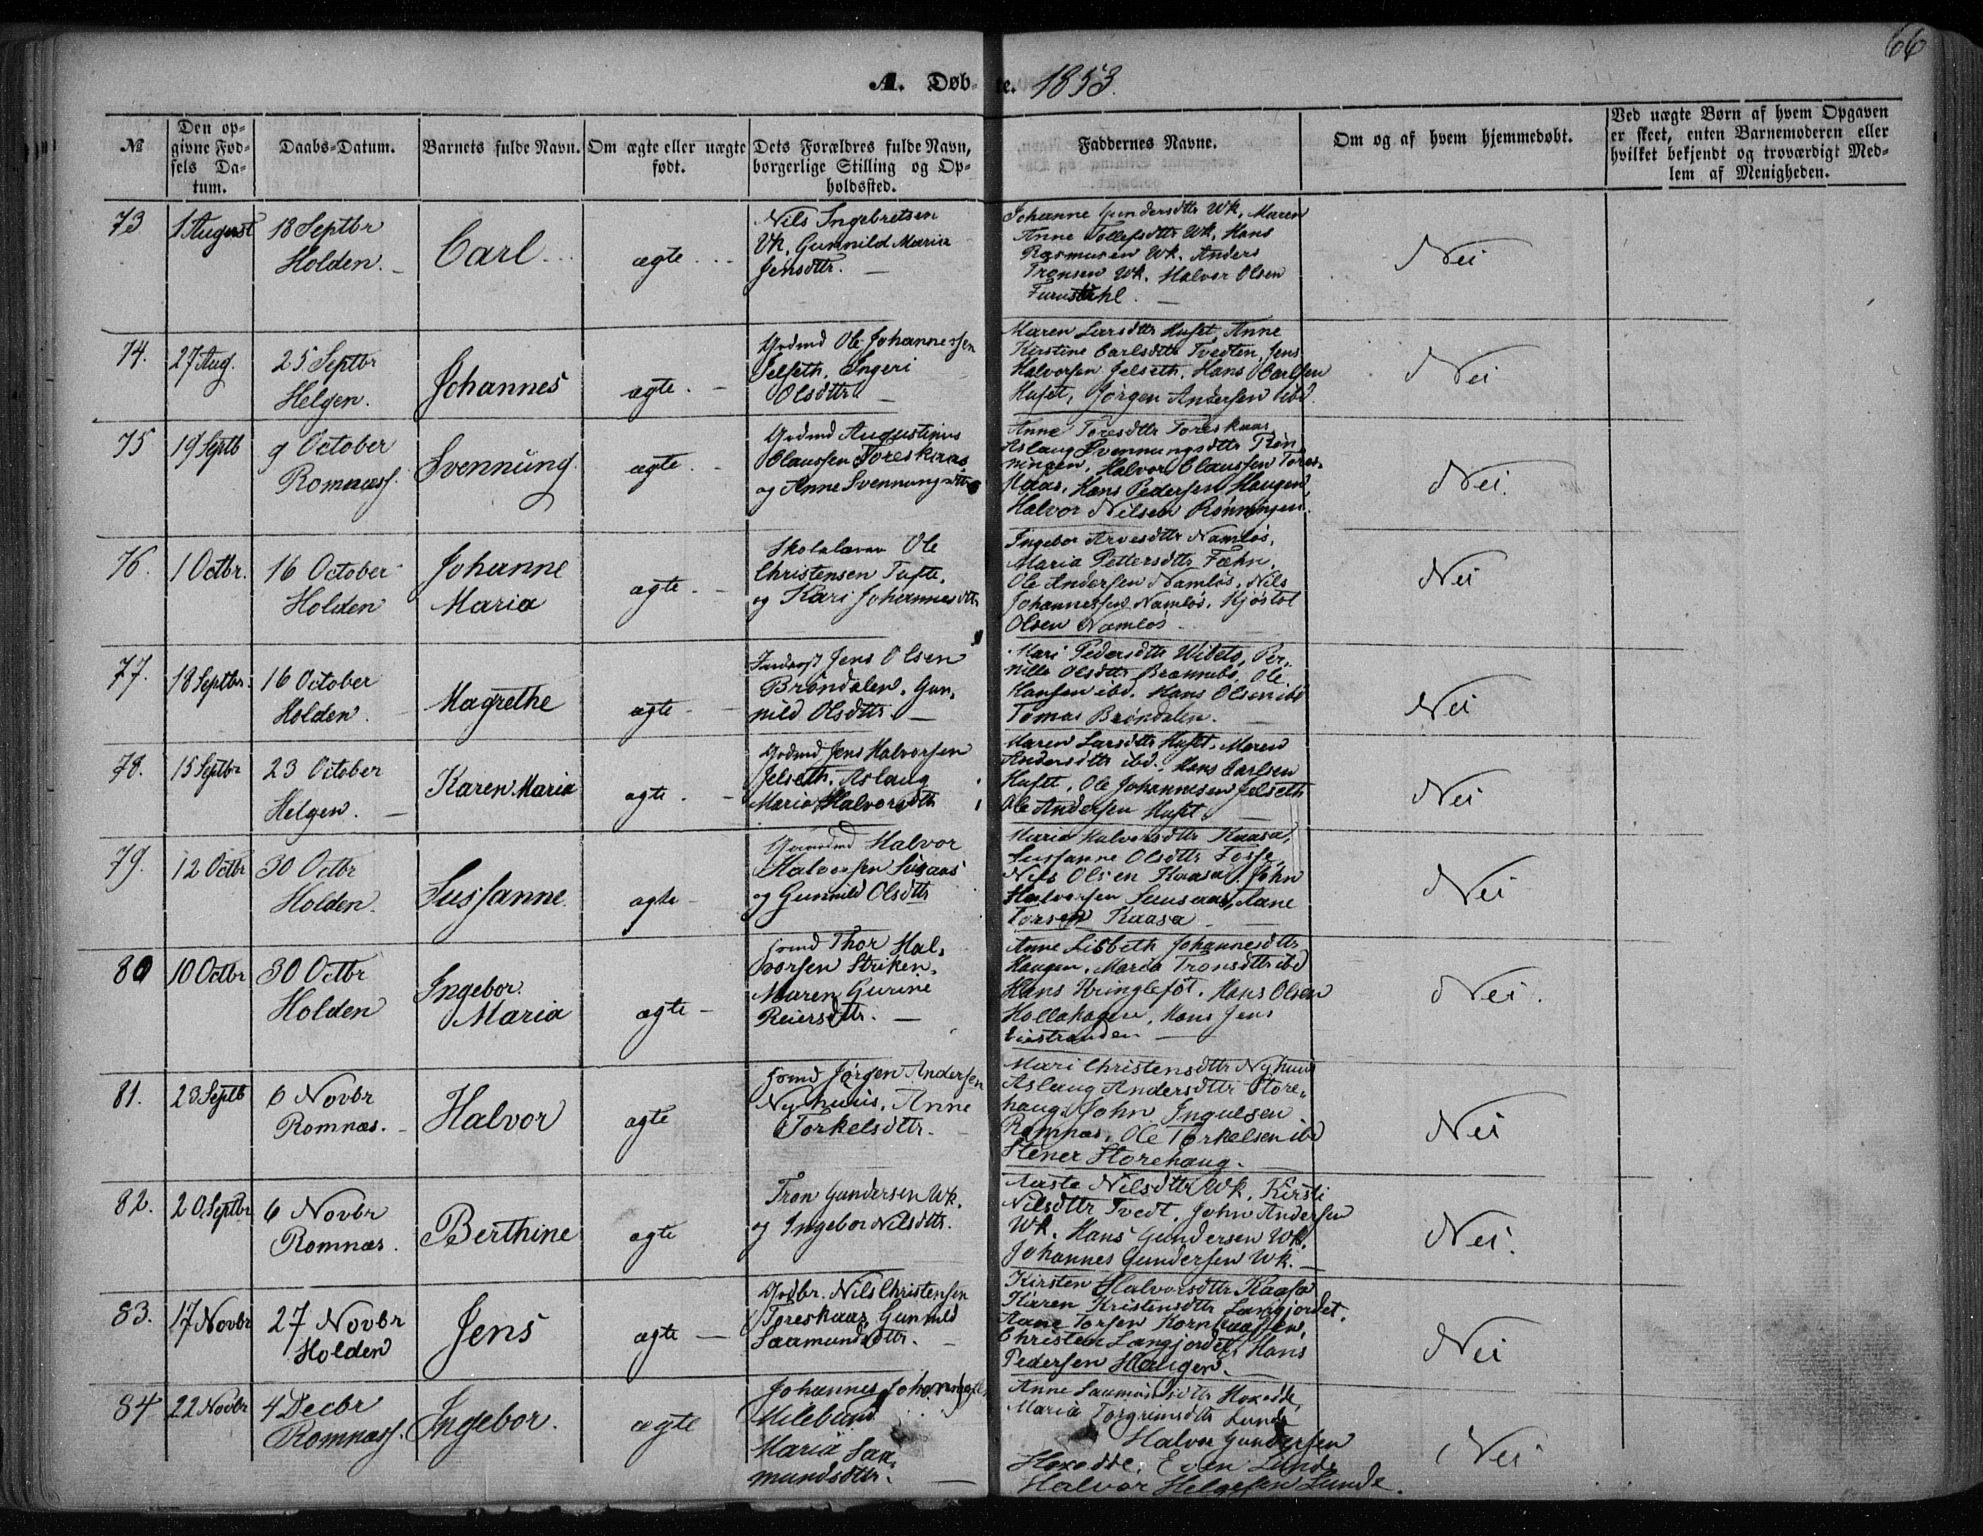 66
A. Døbte. 1853.
№
Den opgivne Fødsels Datum.
Daabs-Datum.
Barnets fulde Navn.
Om ægte eller uægte født.
Dets Forældres fulde Navn, borgerlige Stilling og Opholdssted.
Faddernes Navne.
Om og af hvem hjemmedøbt.
Ved uægte Børn af hvem Opgaven er skeet, enten Barnemoderen eller hvilket bekjendt og troværdigt Medlem af Menigheden.
73
1 August
18 Septbr
Holden.
Carl
ægte
Nils Ingebretsen
Vk. Gunnild Maria
Jensdttr.
Johanne Gundersdttr Wk. Maren
Anne Tollefsdttr Wk. Hans
Rasmusen Wk. Anders
Tronsen Wk. Halvor Olsen
Nei
74.
27 Aug.
25 Septbr
Helgen.
Johannes
ægte
Ole Johannessen
Jelseth. Ingeri
Olsdttr
Maren Larsdttr Huset. Anne
Kirstine Carlsdttr Tvedten, Jens
Halvorsen Jelseth. Hans Carlsen
Huset, Jørgen Andersen ibd.
Nei
75
19 Septb
9 October
Romnæss.
Svennung
ægte
Augustinus
Claussen Toreskaas
og Anne Svennungsdttr
Anne Toresdttr Toreskaas
Aslaug Svennungsdttr Røn-
ningen, Halvor Claussen Tores-
kaas, Hans Pedersen Haugen,
Halvor Nilsen Rønningen.
Nei.
76.
1 Octbr.
16 October
Holden
Johanne
Maria
ægte
Skolelærer Ole
Christensen Tufte,
og Kari Johannesdttr
Ingebor Arvesdttr Namløs,
Maria Pettersdttr Fæhn,
Ole Andersen Namløs, Nils
Johannessen Namløs, Kjøstol
Olsen Namløs
Nei
77.
18 Septbr.
16 October
Holden
Magrethe
ægte
Inderst Jens Olsen
Brøndalen. Gun-
nild Olsdttr.
Mari Pedersdttr Wibeto, Per-
nille Olsdttr Brænnebø, Ole
Hansen ibd. Hans Olsen ibd
Tomas Brøndalen.
Nei
78.
15 Septbr
23 October
Helgen.
Karen Maria
ægte
Jens Halvorsen
Jelseth. Aslaug
Maria Halvorsdttr
Maren Larsdttr Huset. Maren
Andersdttr ibd. Hans Carlsen
Huset, Ole Johannesen Jelseth
Ole Andersen Huset.
Nei
79.
12 Octbr
30 Octbr
Holden.
Sussanne
ægte
Halvor
Halvorsen
og Gunnild Olsdttr
Maria Halvorsdttr Kaasa,
Sussanne Olsdttr Fosse,
Nils Olsen Kaasa. John
Halvorsen
Torsen Kaasa
Nei
80
10 Octbr
30 Octbr
Holden
Ingebor.
Maria
ægte
Thor Hal-
vorsen Striken,
Maren Gurine
Reiersdttr.
Anne Lisbeth Johannesdttr
Haugen. Maria Tronsdttr ibd
Hans Kringlefot. Hans Olsen
Hollahagen. Hans Jens
Nei.
81.
23 Septb
6 Novbr
Romnæs.
Halvor
ægte
Jørgen Andersen
Nyhuus, Anne
Torkelsdttr.
Mari Christensdttr Nyhuus
Aslaug Andersdttr Store-
haug. John Ingulsen
Romnæs, Ole Torkelsen ibd
Stener Storehaug.
Nei
82.
20 Septbr
6 Novbr
Romnæs.
Berthine
ægte
Tron Gundersen Wk.
og Ingebor Nilsdttr.
Aaste Nilsdttr Wk, Kirsti
Nilsdttr Tvedt, John Andersen
Wk. Hans Gundersen Wk.
Johannes Gundersen Wk.
Nei.
83.
17 Novbr
27 Novbr
Holden
Jens
ægte
Nils Christensen
Toreskaas Gunnild
Saamundsdttr.
Kirsten Halvorsdttr Kaasa
Karen Kristensdttr Langjordet.
Christen Langjordet, Hans
Pedersen Haugen.
Nei
84
22 Novbr
4 Decbr
Romnæss.
Ingebor.
ægte
Johannes
Maria Saa-
mundsdttr.
Anne Saamundsdttr Hoxodde,
Maria Torgrimsdttr Lunde
Halvor Gundersen
Hoxodde. Even Lunde
Halvor Helgesen Lunde.
Nei